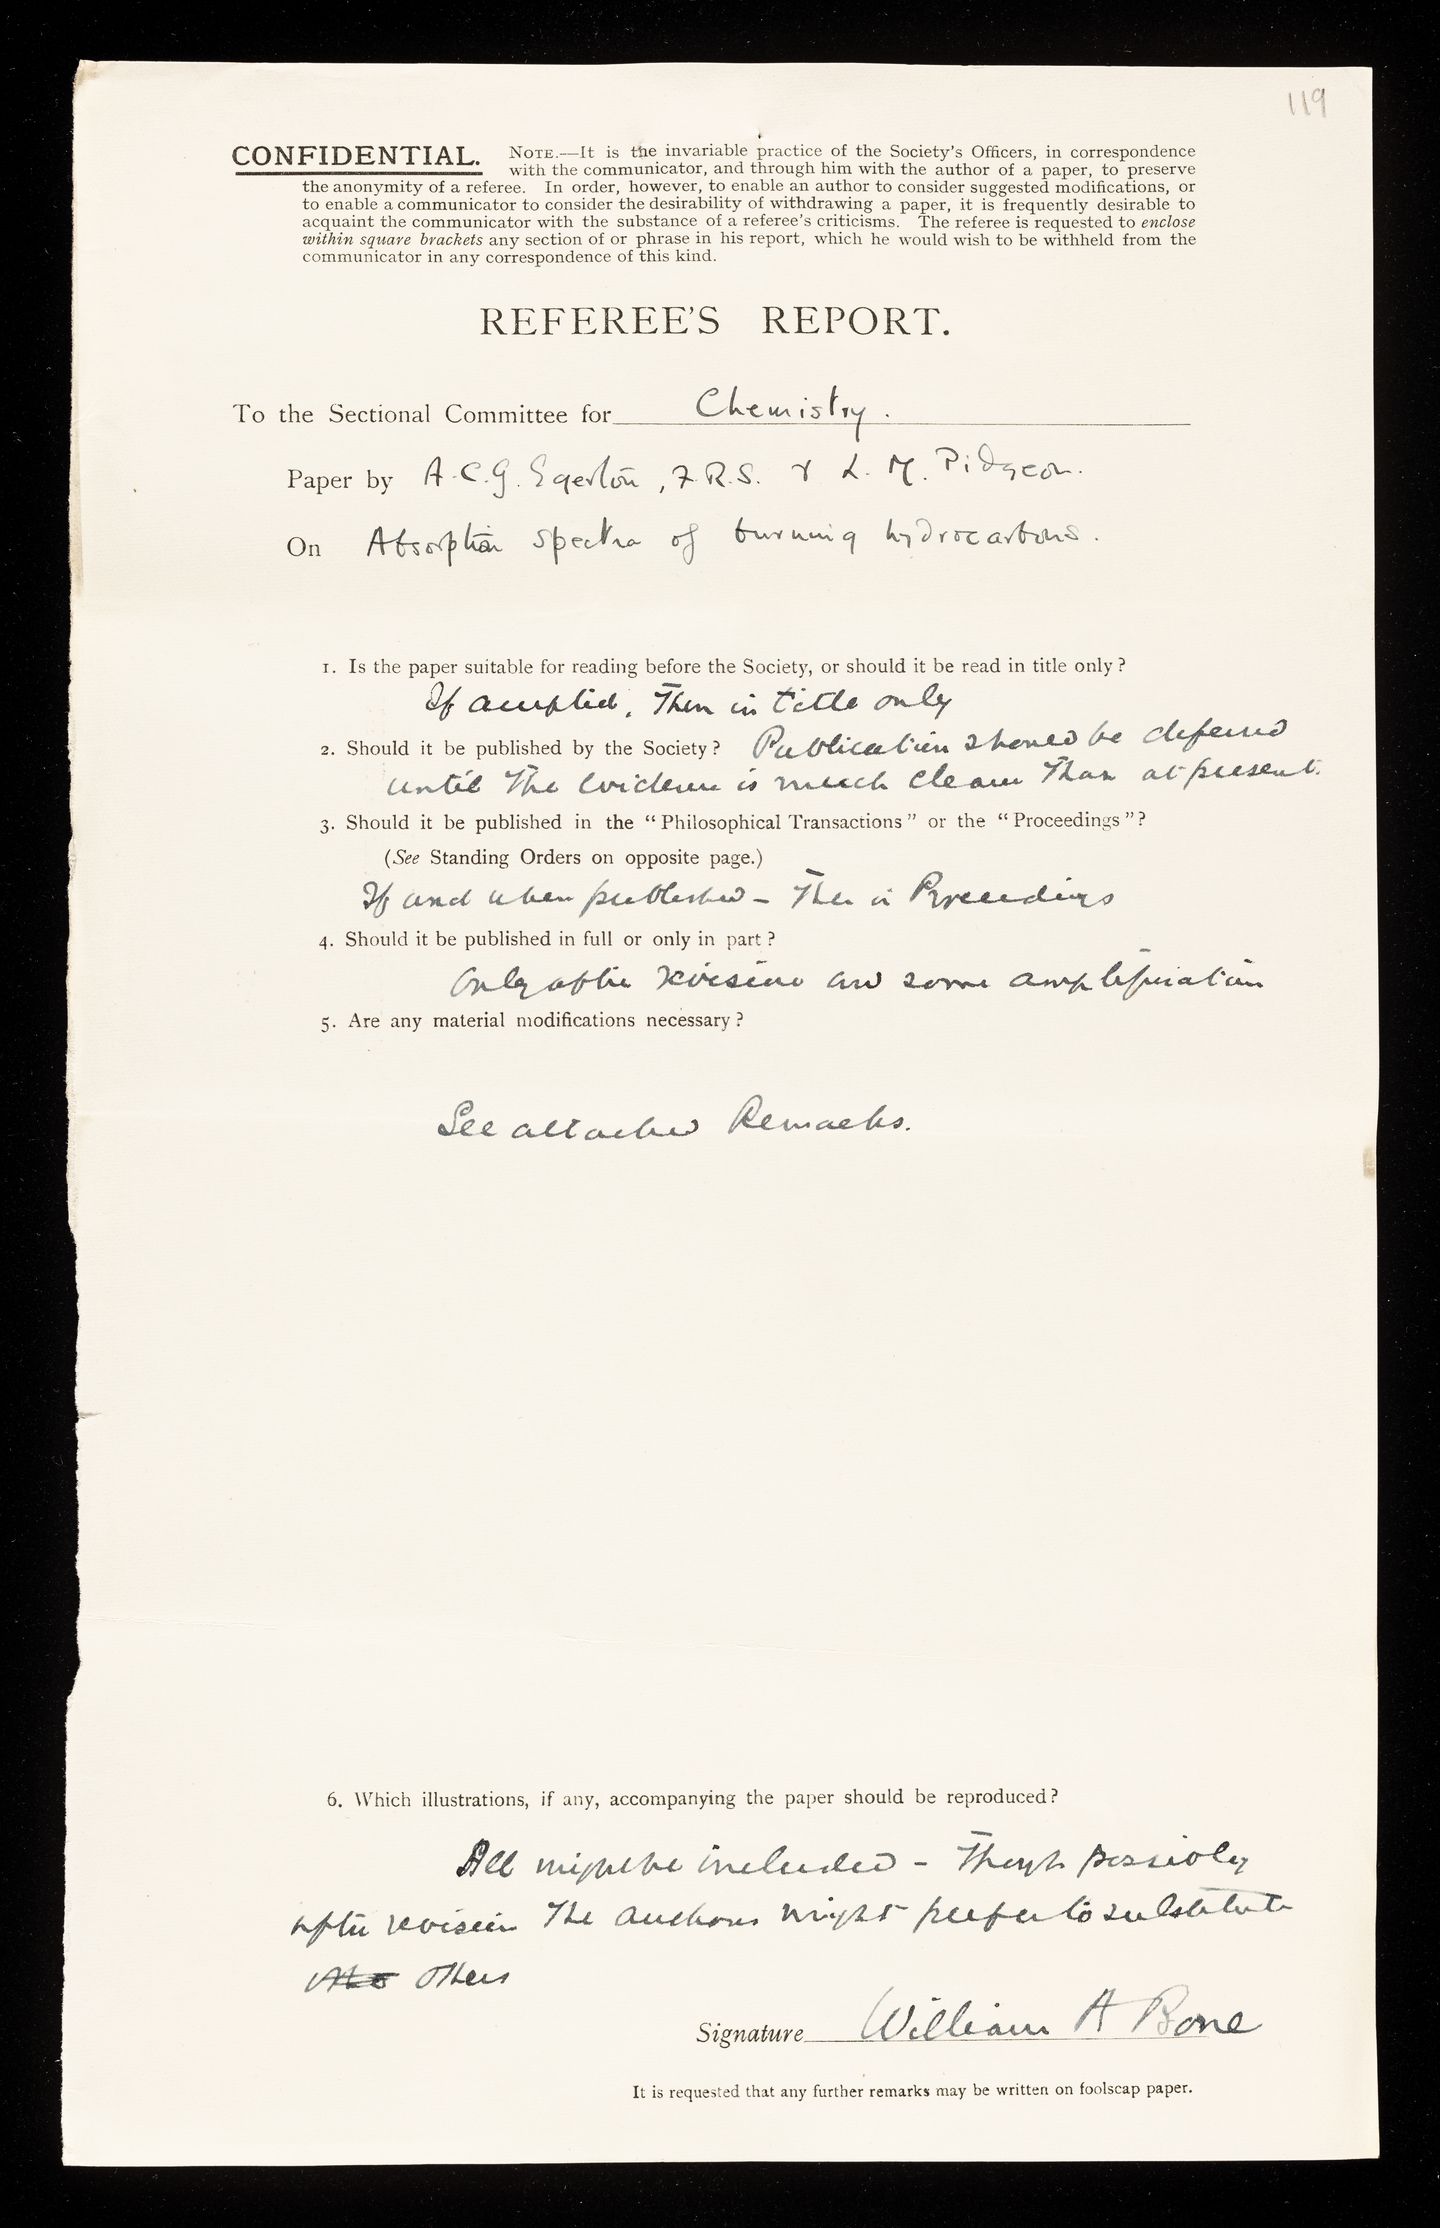 119
CONFIDENTIAL. NOTE.—It is the invariable practice of the Society's Officers, in correspondence
with the communicator, and through him with the author of a paper, to preserve
the anonymity of a referee. In order, however, to enable an author to consider suggested modifications, or
to enable a communicator to consider the desirability of withdrawing a paper, it is frequently desirable to
acquaint the communicator with the substance of a referee's criticisms. The referee is requested to enclose
within square brackets any section of or phrase in his report, which he would wish to be withheld from the
communicator in any correspondence of this kind.
REFEREE'S REPORT.
To the Sectional Committee for Chemistry.
Paper by A.C.G. Egerton, F.R.S. & L. M. Pidgeon.
On Absorption spectra of burning hydrocarbons.
1. Is the paper suitable for reading before the Society, or should it be read in title only?
If accepted, then in title only
2. Should it be published by the Society? Publication should be deferred
until the evidence is much clearer than at present.
3. Should it be published in the "Philosophical Transactions" or the "Proceedings"?
(See Standing Orders on opposite page.)
If and when published – then in Proceedings
4. Should it be published in full or only in part?
Only after revision and some amplification
5. Are any material modifications necessary?
See attached Remarks.
6. Which illustrations, if any, accompanying the paper should be reproduced?
All might be included – though possibly
after revision the authors might prefer to substitute
others
Signature William A Bone
It is requested that any further remarks may be written on foolscap paper.